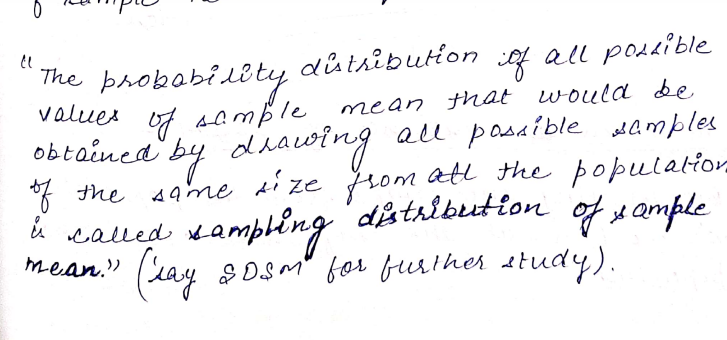 "The probability distribution of all possible
values of sample mean that would be
obtained by drawing all possible samples
of the same size from all the population
is called sampling distribution of sample
mean." (say SDSM" for further study).